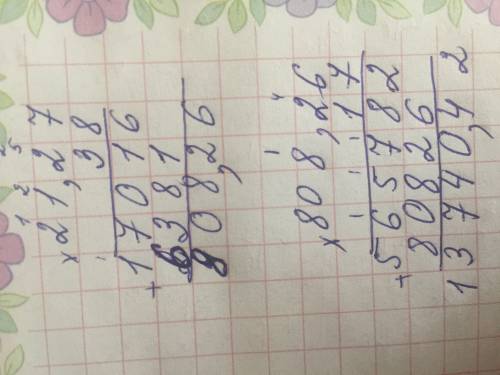 1 2 5
× 21,27
38
17016
+ 6381
808,26
× 808,26
17
565782
+ 80826
13740,42